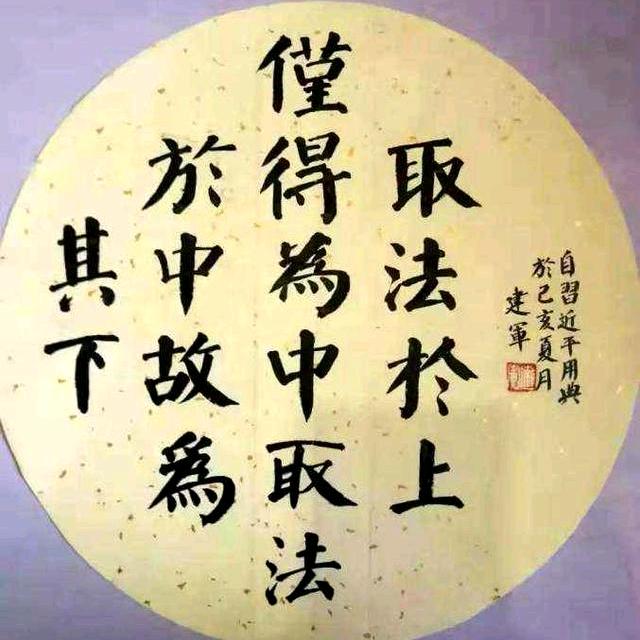 自習近平用典
於己亥夏月
建軍
取法於上
僅得為中取法
於中故爲
其下